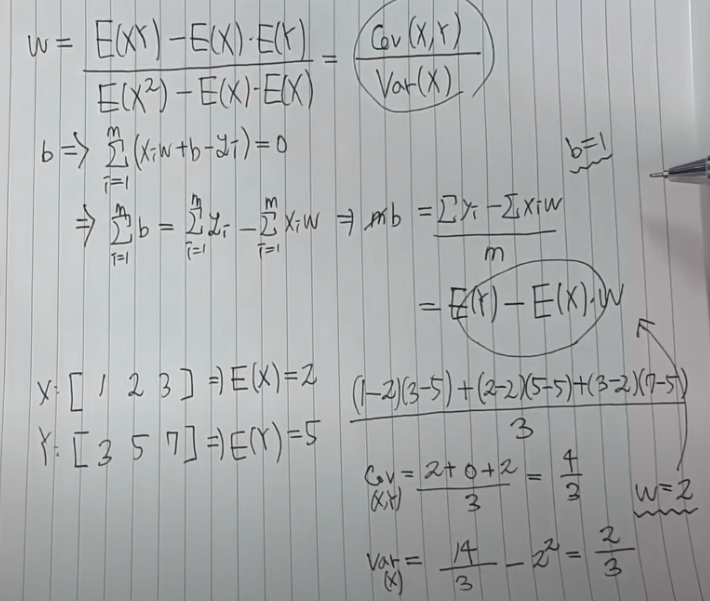 w = E(XY) - E(X)·E(Y) / E(X²) - E(X)·E(X) = Cov(X,Y) / Var(X)
b => Σ_{i=1}^{m} (x_i w + b - y_i) = 0
b=1
=> Σ_{i=1}^{m} b = Σ_{i=1}^{m} y_i - Σ_{i=1}^{m} x_i w => mb = Σy_i - Σx_i w / m
= E(Y) - E(X)·w
X: [ 1 2 3 ] => E(X)=2
Y: [ 3 5 7 ] => E(Y)=5
(1-2)(3-5) + (2-2)(5-5) + (3-2)(7-5) / 3
Cov(X,Y) = 2+0+2 / 3 = 4/3
w=2
Var(X) = 14/3 - 2² = 2/3